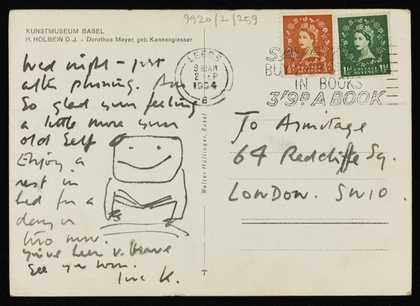 9920/2/259
KUNSTMUSEUM BASEL
H. HOLBEIN D.J. – Dorothea Meyer, geb. Kannengiesser
Wed night – just
after phoning. Am
So glad your feeling
a little more your
old self
Enjoy a
rest in
bed for a
day or
two now.
You've been v. brave
See you soon.
love K.
LEEDS
AM
SEP
1954
8
IN BOOKS
3'9D A BOOK
To Armitage
64 Redcliffe Sq.
LONDON. SW10